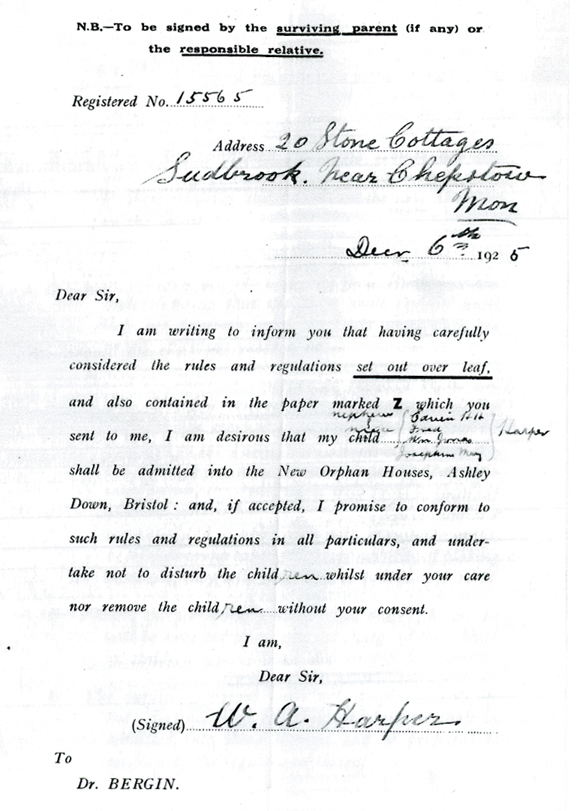 N.B.—To be signed by the surviving parent (if any) or
the responsible relative.
Registered No. 15565
Address 20 Stone Cottages
Sudbrook. Near Chepstow
Mon
Decr 6th 1925
Dear Sir,
I am writing to inform you that having carefully
considered the rules and regulations set out over leaf,
and also contained in the paper marked Z which you
nephews Edwin
niece Fred
sent to me, I am desirous that my child Wm. Jonas Harper
Josephine May
shall be admitted into the New Orphan Houses, Ashley
Down, Bristol : and, if accepted, I promise to conform to
such rules and regulations in all particulars, and under-
take not to disturb the children whilst under your care
nor remove the children without your consent.
I am,
Dear Sir,
(Signed) W. A. Harper.
To
Dr. BERGIN.